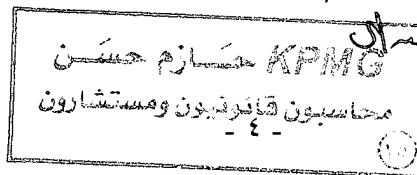 KPMG حازم حسن
محاسبون قانونيون ومستشارون
- ٤ -